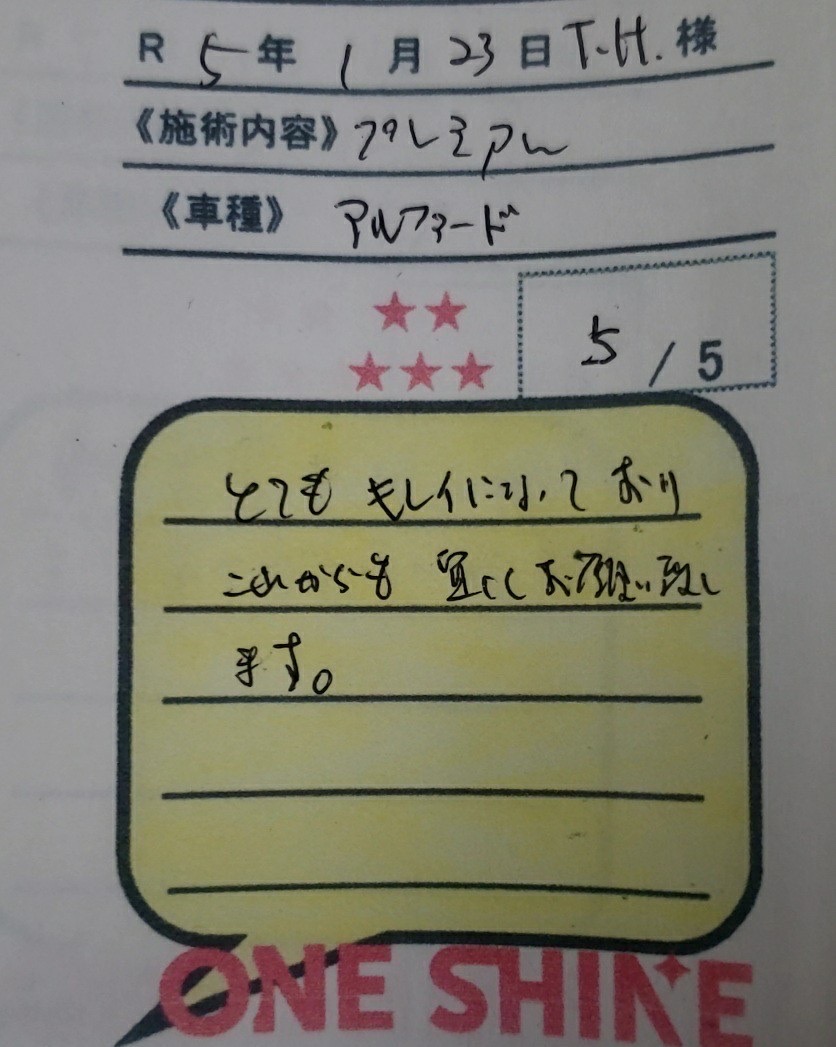 R 5年 1月 23日 T.H. 様
《施術内容》プレミアム
《車種》 アルファード
5 / 5
とても キレイになって おり
これからも 宜しく お願い致し
ます。
ONE SHINE